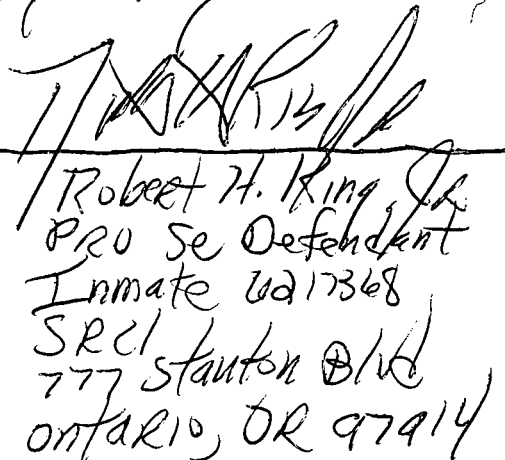 Robert H. King, Jr.
PRO Se Defendant
Inmate 6217368
SRCI
777 Stanton Blvd
ontaRIO, OR 97914